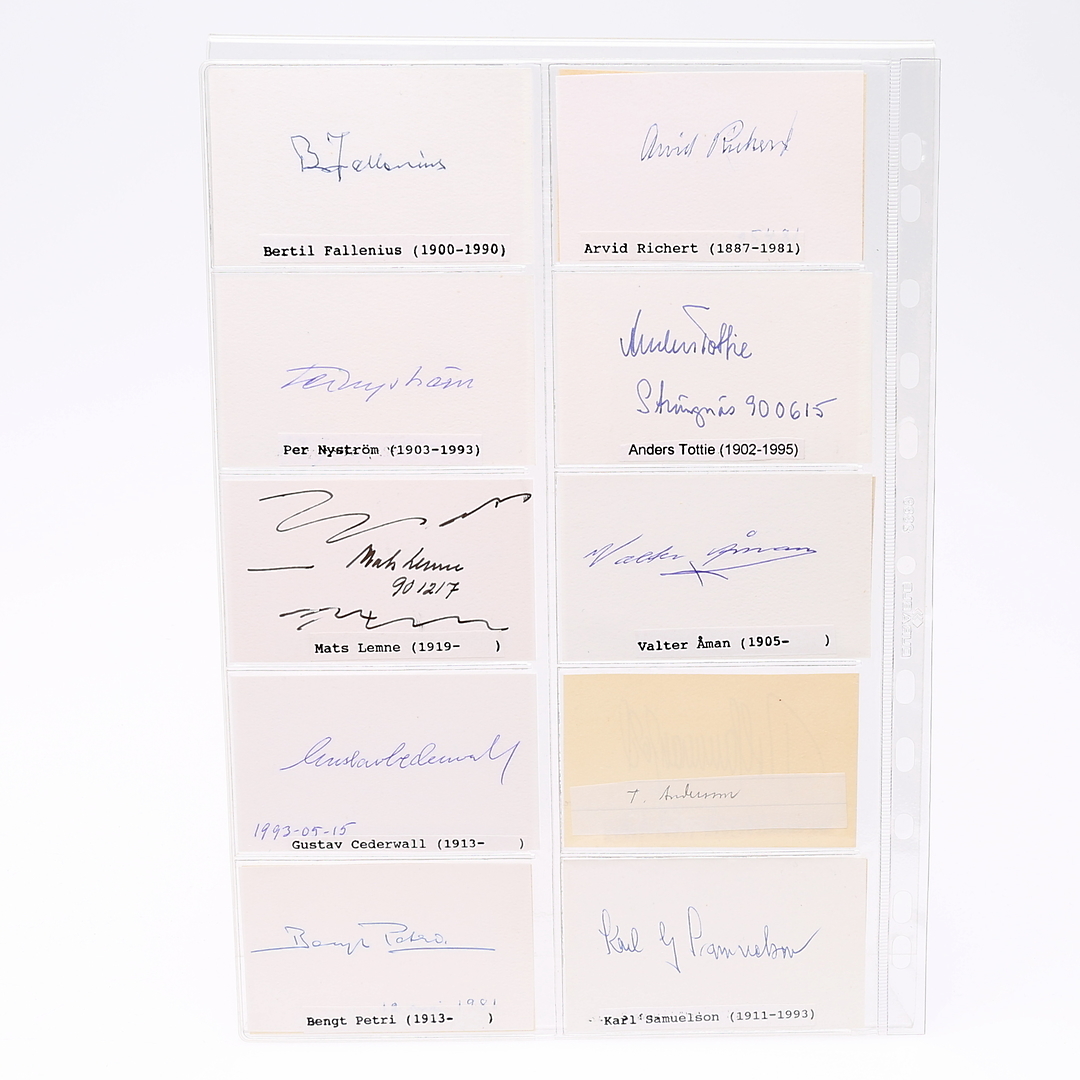 B Fallenius
Bertil Fallenius (1900-1990)
Arvid Richert
Arvid Richert (1887-1981)
Per Nyström
Per Nyström (1903-1993)
Anders Tottie
Strängnäs 900615
Anders Tottie (1902-1995)
Mats Lemne
901217
Mats Lemne (1919- )
Valter Åman
Valter Åman (1905- )
Gustav Cederwall
1993-05-15
Gustav Cederwall (1913- )
T. Andersson
Bengt Petri
Bengt Petri (1913- )
Karl G Samuelson
Karl Samuelson (1911-1993)